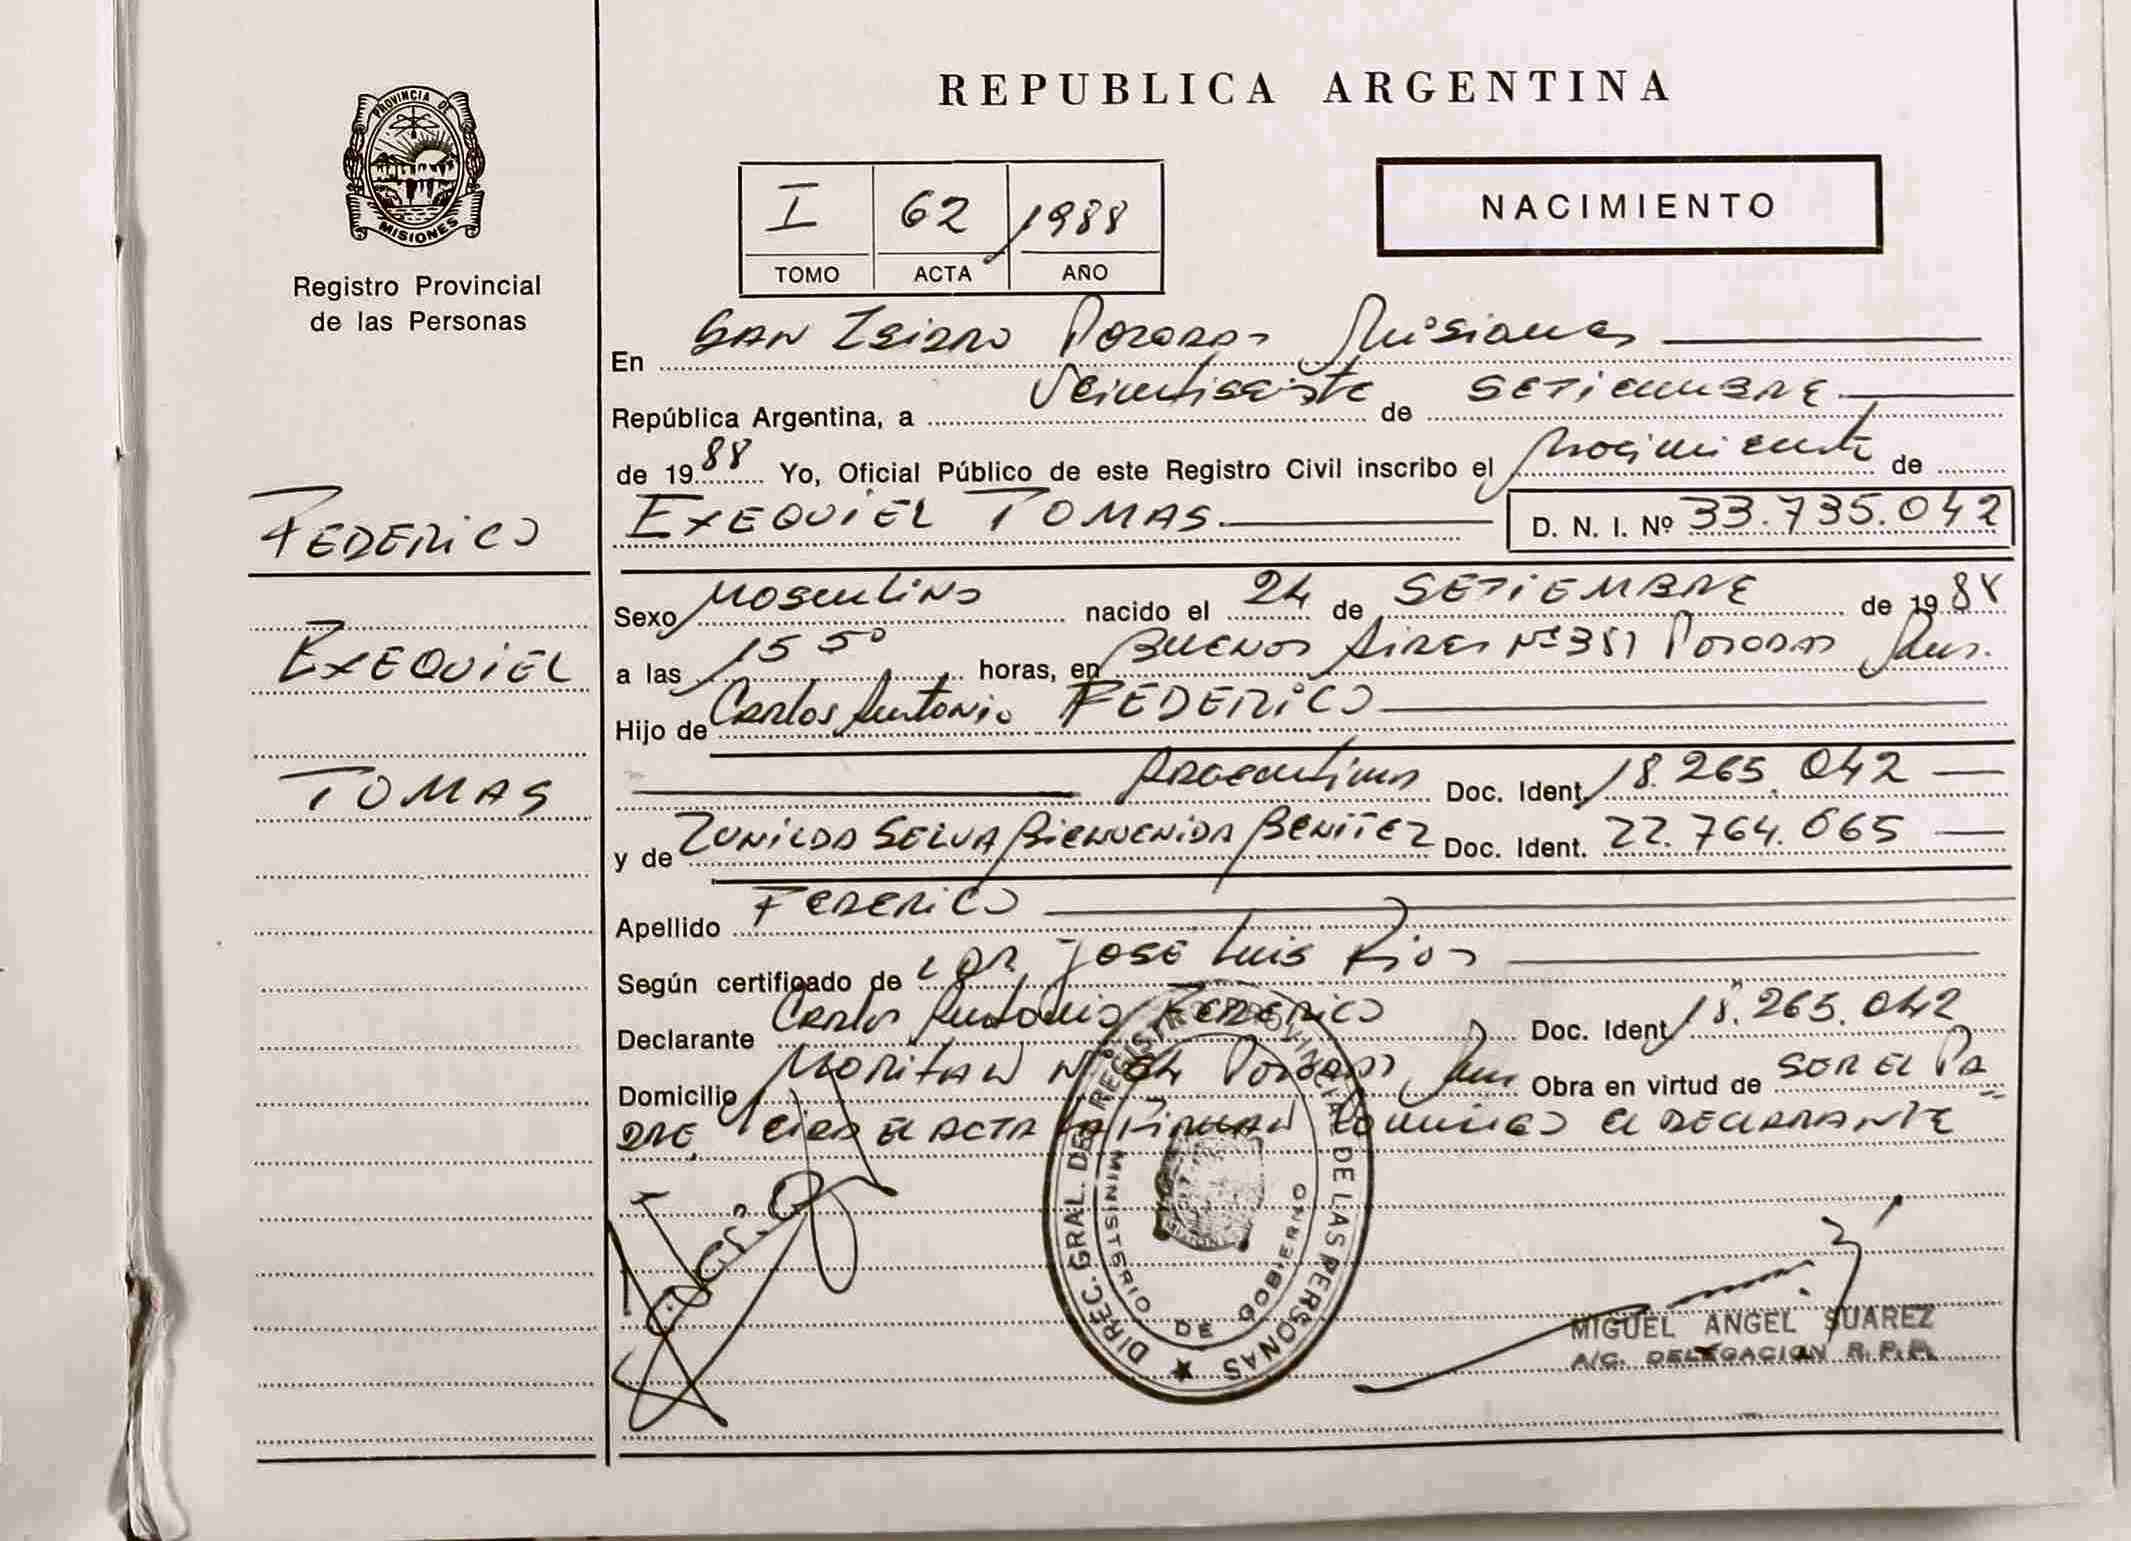 PROVINCIA DE
MISIONES
Registro Provincial
de las Personas
FEDERICO
EXEQUIEL
TOMAS
REPUBLICA ARGENTINA
I 62 1988
TOMO ACTA AÑO
NACIMIENTO
En San Isidro Posadas Misiones
República Argentina, a Veintisiete de SETIEMBRE
de 1988 Yo, Oficial Público de este Registro Civil inscribo el Nacimiento de
EXEQUIEL TOMAS D. N. I. Nº 33.735.042
Sexo Masculino nacido el 24 de SETIEMBRE de 1988
a las 15 50 horas, en BUENOS AIRES Nº 351 Posadas Mnes.
Hijo de Carlos Antonio FEDERICO
Argentino Doc. Ident. 18.265.042
y de ZUNILDA SELVA BIENVENIDA BENITEZ Doc. Ident. 22.764.665
Apellido FEDERICO
Según certificado de DR. JOSE Luis Rios
Declarante Carlos Antonio FEDERICO Doc. Ident 18.265.042
Domicilio Nº 64 Posadas Mnes Obra en virtud de SER EL PA
DRE. Leida EL ACTA la FIRMAN conmigo el DECLARANTE
DIREC. GRAL. DEL REGISTRO PROVINCIAL DE LAS PERSONAS
MINISTERIO DE GOBIERNO
MIGUEL ANGEL SUAREZ
A/C. DELEGACION R. P. P.